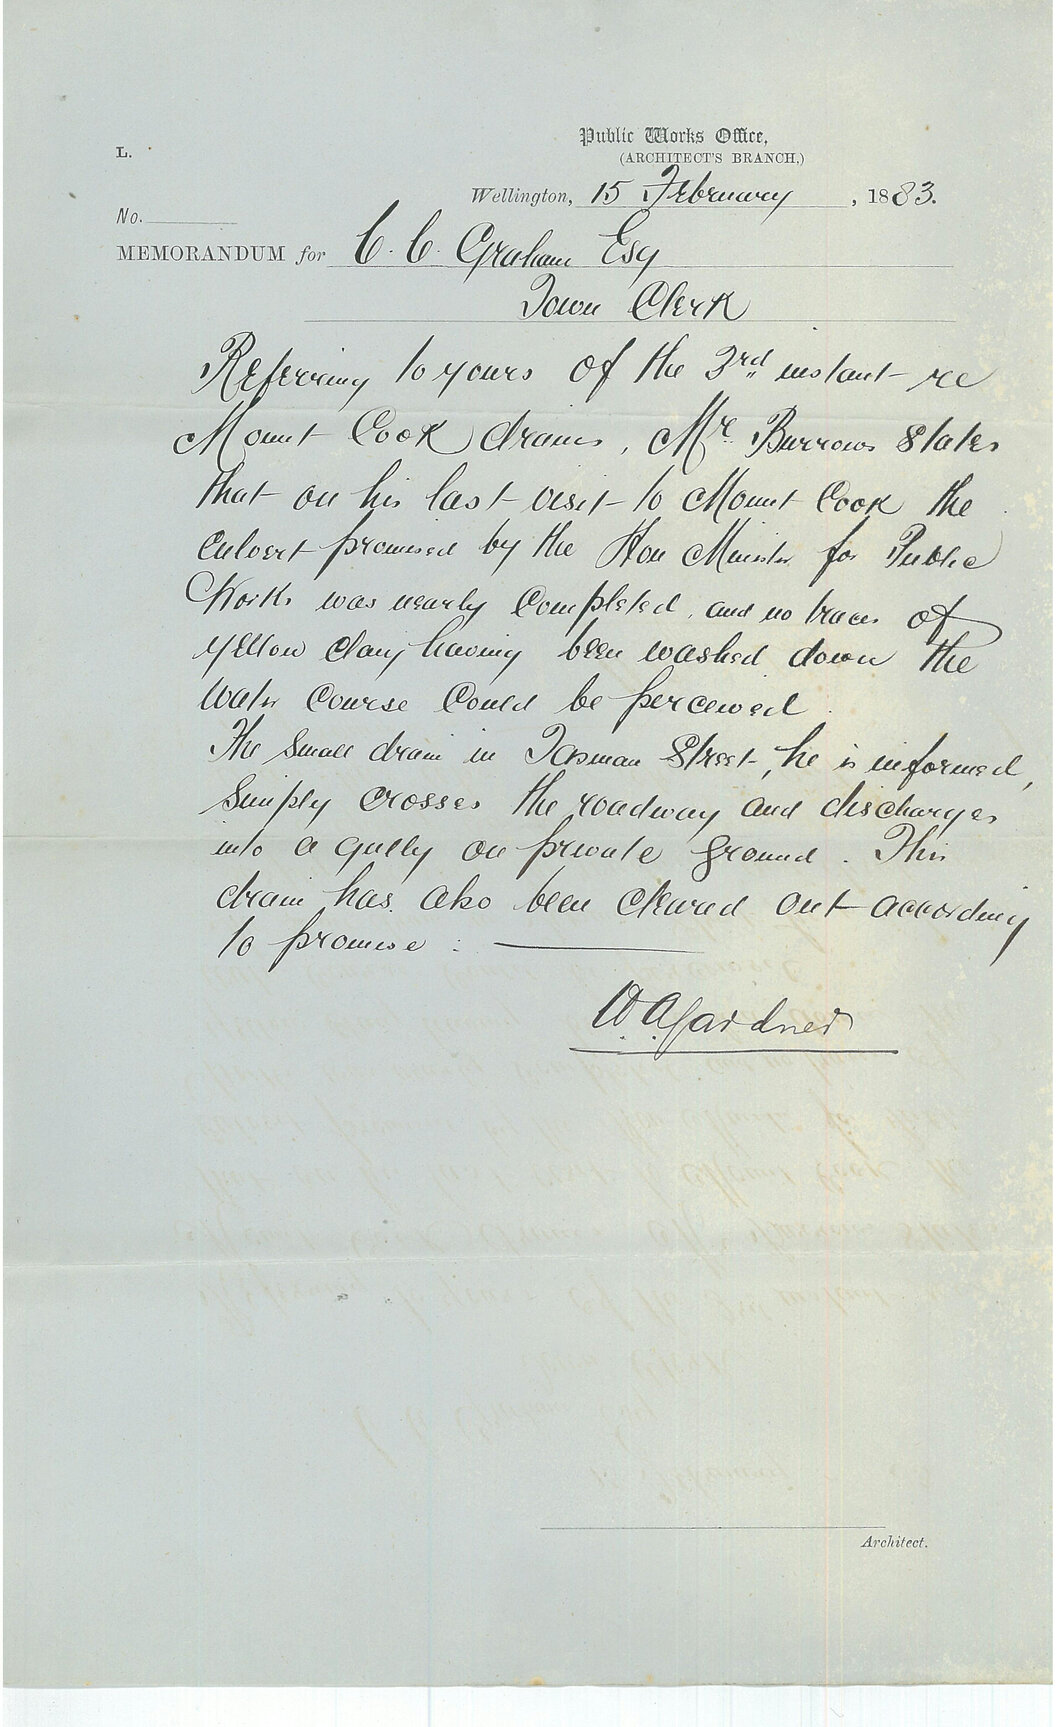 L.
Public Works Office,
(ARCHITECT'S BRANCH,)
Wellington, 15 February, 1883.
No.
MEMORANDUM for C. C. Graham Esq
Town Clerk
Referring to yours of the 3rd instant re
Mount Cook drains, Mr. Burrows states
that on his last visit to Mount Cook the
culvert promised by the Hon Minister for Public
Works was nearly completed, and no traces of
yellow clay having been washed down the
water course could be perceived.
The small drain in Tasman Street, he is informed,
simply crosses the roadway and discharges
into a gully on private ground. This
drain has also been cleared out according
to promise :
W. A. Gardner
Architect.